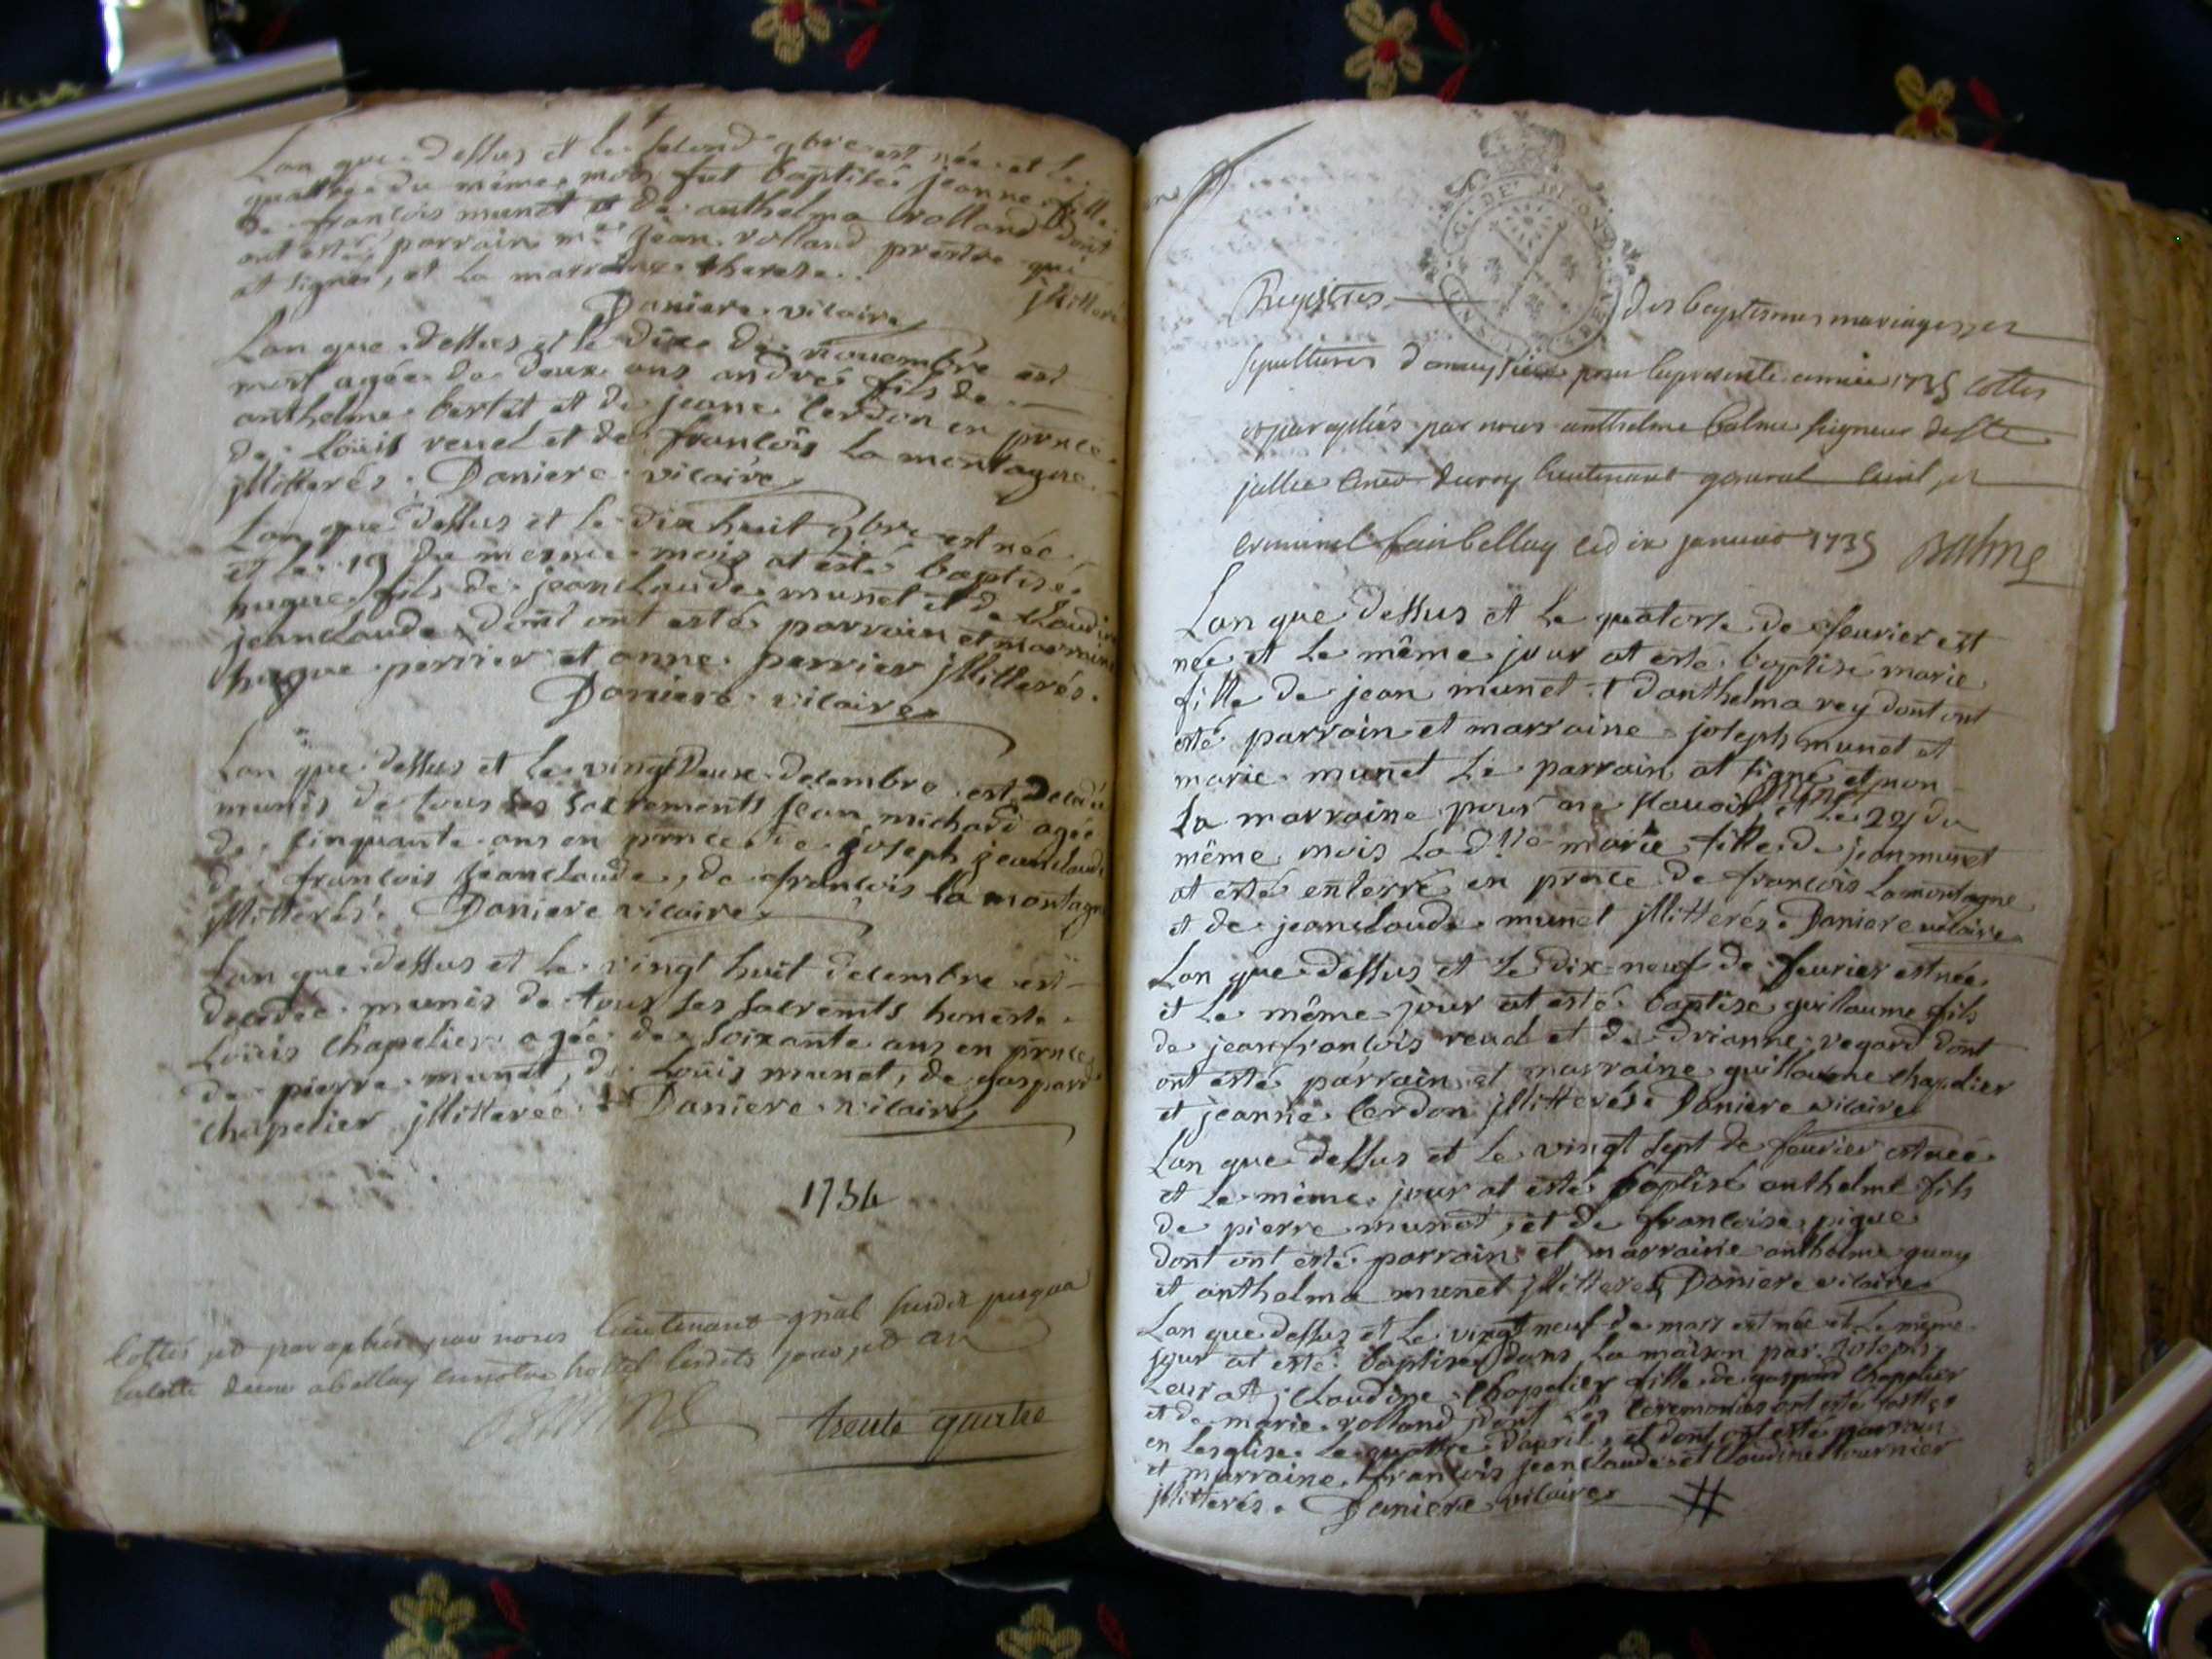 Lan que dessus et le second 9bre est née et le
quattre du même mois fut baptisée jeanne fille
de francois munet et de anthelma rolland dont
ont esté parrain mre jean rolland prestre qui
at signé, et la marraine therese
jllitterés
Daniere vicaire
Lan que dessus et le dixe de nouembre est
mort agée de deux ans andré fils de
anthelme bertet et de jeane cerdon en prnce
de Loüis reuel et de francois la montagne
jllitterés. Daniere vicaire
Lan que dessus et le dix huit 9bre est née
et le 19 du mesme mois at esté baptisé
hugue fils de jeanclaude munet et de claudine
jeanclaude dont ont estés parrain et marraine
hugue perrier et anne perrier jllitterés.
Daniere vicaire
Lan que dessus et le vingt Deux decembre est decedé
munis de tous ses sacrements jean michard agée
de cinquante ans en prnce de joseph jeanclaude
de francois jeanclaude, de francois la montagne
jllitterés. Daniere vicaire
Lan que dessus et le vingt huit decembre est
decedée munis de tous ses sacremts honeste
Loüis chapelier agée de soixante ans en prnce
de pierre munet, de Loüis munet, de gaspard
chapelier jllitteréé Daniere vicaire
1734
Cottés et paraphés par nous lieutenant gnal susdit jusqua
abelley en notre hotel lesdits jour et an
Balme
trente quatre
Registres des baptesmes mariages, et
sepultures pour la presente année 1735 cottes
et paraphés par nous anthelme balme seigneur de Ste
jullie consr du roy lieutenant general ciuil, et
criminel fait belley le dix januier 1735 Balme
Lan que dessus et le quatorse de feurier est
née et le même jour at esté baptisé marie
fille de jean munet et danthelma rey dont ont
esté parrain et marraine joseph munet et
marie munet le parrain at signé et non
la marraine pour ne scauoir, et le 22 du
même mois lad.lle marie fille de jean munet
at esté enterré en prnce de francois lamontagne
et de jeanclaude munet jllitterés. Daniere vicaire
Lan que dessus et le dix-neuf de feurier est née
et le même jour at esté baptisé guillaume fils
de jeanfrancois reuel et de Drianne vegard dont
ont esté parrain et marraine guillaume chapelier
et jeanne cerdon jllitterés. Daniere vicaire
Lan que dessus et le vingt sept de feurier est née
et le même jour at esté baptisé anthelme fils
de pierre munet, et de francoise pigue
dont ont esté parrain et marraine anthelme guay
et anthelma munet jllitterés Daniere vicaire
Lan que dessus et le vingt neuf de mars est née et le même
jour at esté baptisée dans la maison par joseph
claudine chapelier fille de gaspard chapelier
et de marie rolland dont les ceremonies ont esté faittes
en lesglise le quattre dapril, et dont ont esté parrain
et marraine francois jeanclaude et claudine tournier
jllitterés. Daniere vicaire #